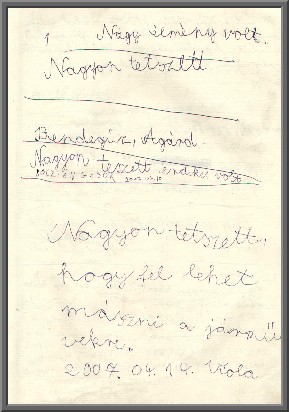 1 Nagy élmény volt.
Nagyon tetszett
Bendegúz, Agárd
Nagyon teszett volt
Nagyon tetszett,
hogy fel lehet
mászni a jármű
vekre.
2007. 04. 14. Viola